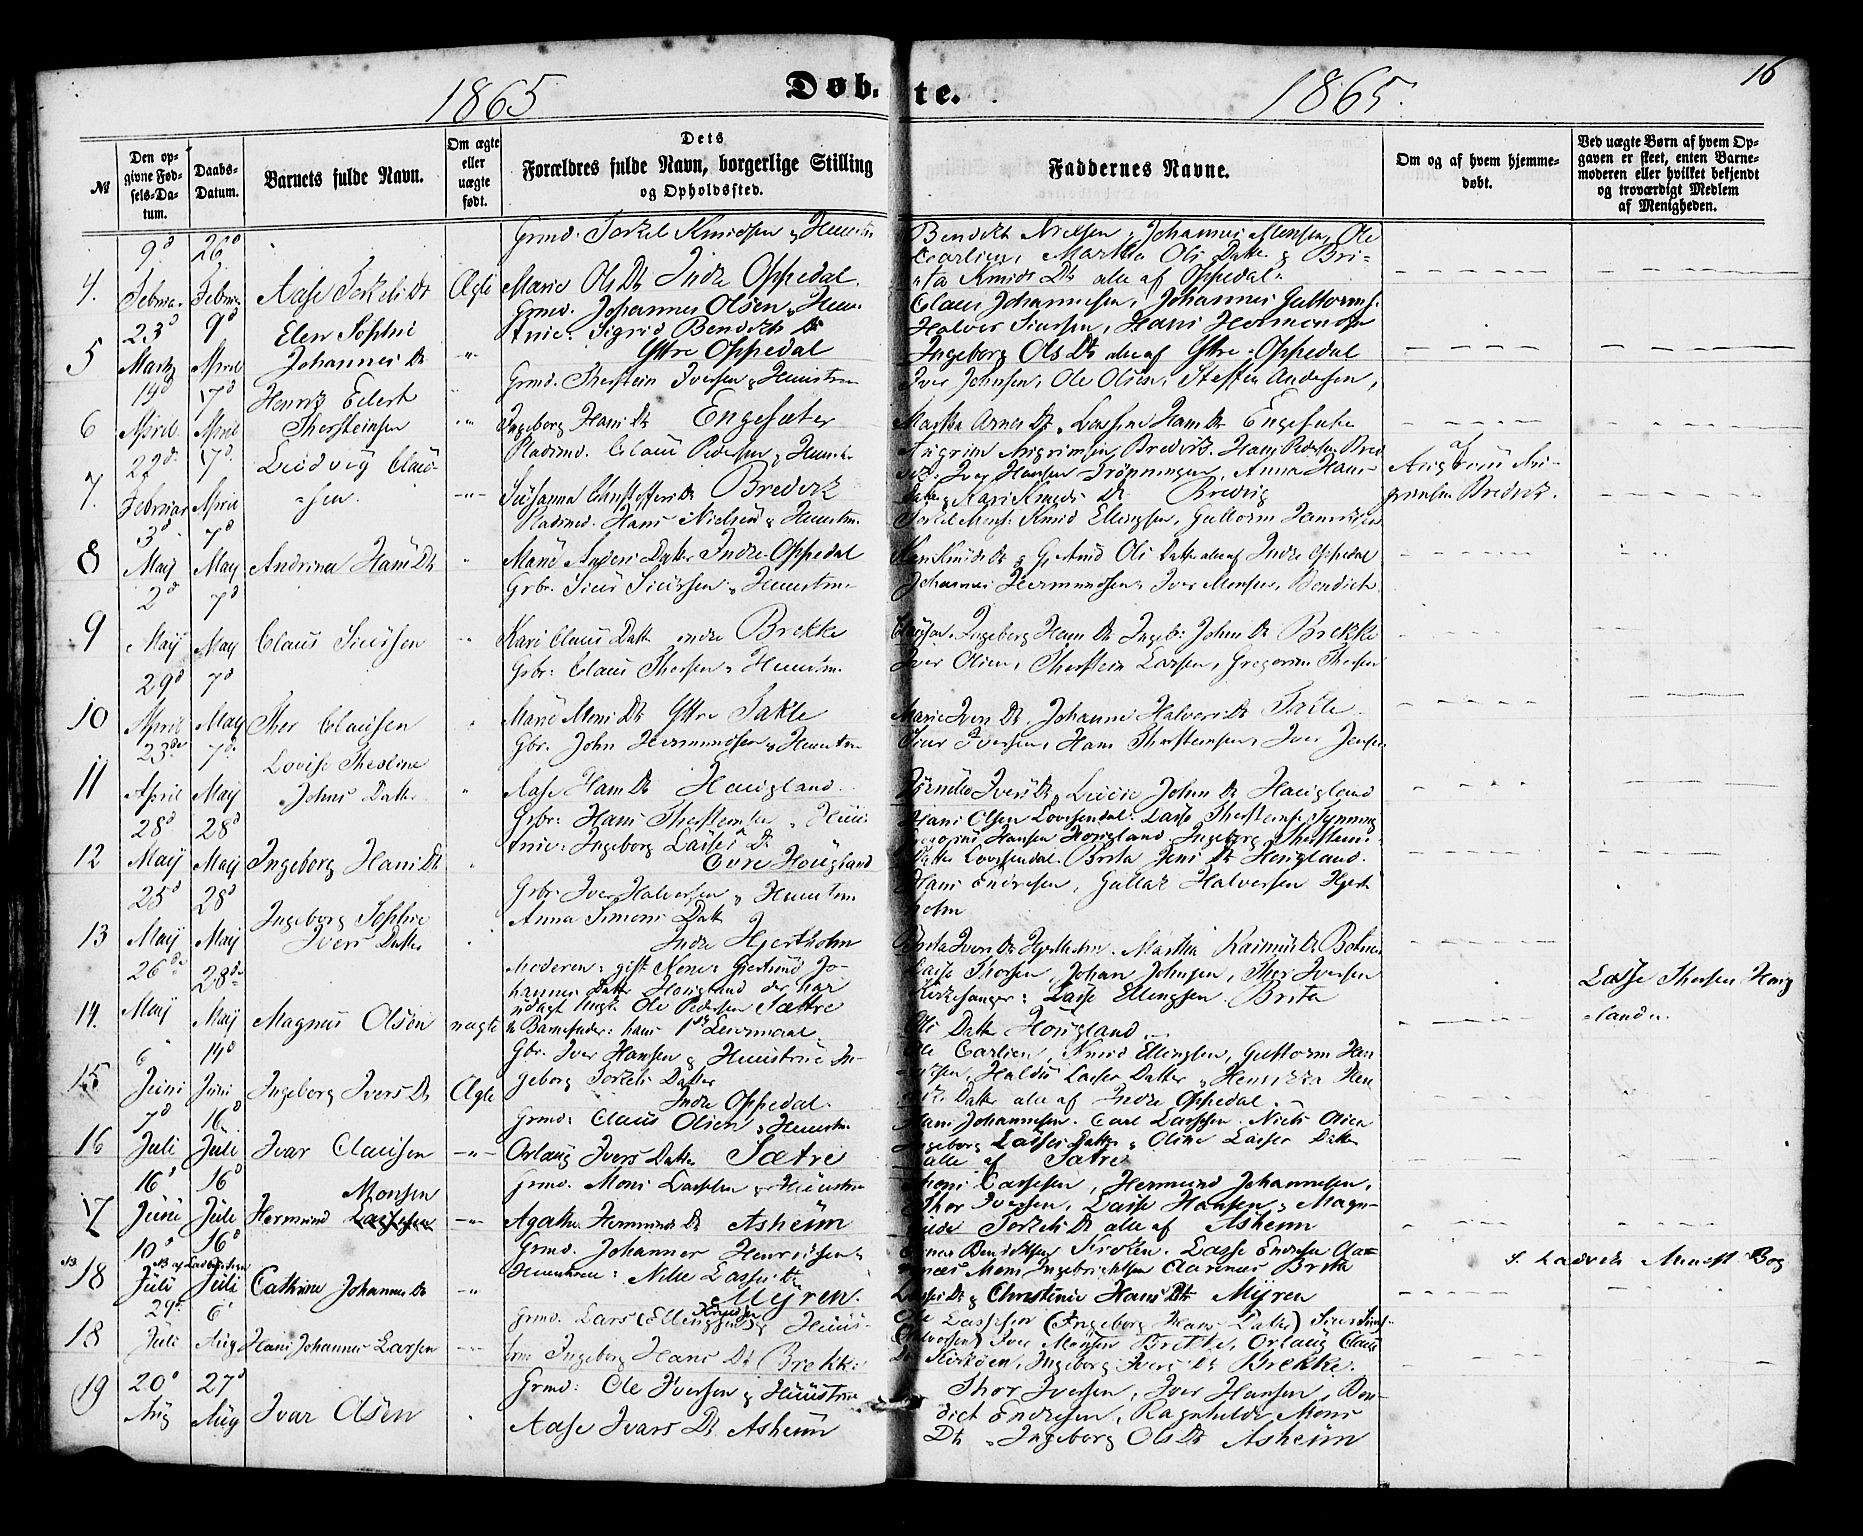 1865
Døb-
te.
1865.
16
№
Den op-
givne Fød-
sels-Da-
tum.
Daabs-
Datum.
Barnets fulde Navn.
Om ægte
eller
uægte
født.
Dets
Forældres fulde Navn, borgerlige Stilling
og Opholdssted.
Faddernes Navne.
Om og af hvem hjemme-
døbt.
Ved uægte Børn af hvem Op-
gaven er skeet, enten Barne-
moderen eller hvilket bekjendt
og troværdigt Medlem
af Menigheden.
4.
9d
Februar
26d
Februar
Aase Torkels Dt
Ægte
Grmd. Torkel Knudsen & Hustru
Marie Ols Dt Indre Oppedal.
Bendikt Nielsen, Johannes Monsen, Ole
Carlsen, Martha Ols Datter & Bri-
ta Knuds Dt alle af Oppedal.
5
23d
Marts
9d
April
Elen Sophie
Johannes Dt
Grmd. Johannes Olsen & Hus-
true: Sigrid Bendikts Dt
Yttre Oppedal
Claus Johannesen, Johannes Guttorms.
Halvor Siursen, Hans Hermundsen
Ingeborg Ols Dt alle af Yttre Oppedal
6
19d
April
17d
April
Henrik Edert
Thorsteinsen
Grmd. Thorstein Iversen & Hustrue
Ingeborg Hans Dt Engesæter
Iver Johnsen, Ole Olsen, Steffen Andersen,
Martha Arnes Dt, Lassine Hans Dt Engesæter
7.
22d
Februar
17d
April
Ludvig Claus-
sen.
Pladsmd. Claus Pedersen & Hustrue
Susanna Christoffers Dt Bredvik
Angrim Angrimsen, Bredvik. Hans Pedersen Bred
vik. Iver Hansen Trønningen, Anna Hans-
datter & Kari Knuds Dt Bredvig
af
Angrim An-
grimsen Bredvik.
8
3d
Maij
7d
May
Andrina Hans Dt
Pladsmd. Hans Nielsen & Hustrue
Marie Anders Datter Indre Oppedal
Torkel Mons. Knud Ellingsen, Guttorm Henriksen
Kari Knuds Dt & Gjertrud Ols Datter alle af Indre Oppedal
9
2d
Maij
7d
May
Claus Siursen
Grbr. Siur Siursen & Hustrue
Kari Claus Datter indre Brekke
Johannes Hermundsen, Iver Monsen, Bendikt
Clausen. Ingeborg Hans Dt Ingeb: Johns Dt Brekke
10
29d
April
7d
May
Thor Clausen
Grbr: Claus Thorsen & Hustrue
Marie Mons Dt Yttre Takle
Iver Olsen, Thorstein Larsen, Gregorius Thorsen
Marie Ivers Dt, Johanne Halvors Dt Takle
11
23de
April
7de
Maij
Lovise Thorine
Johns Datter
Gbr. John Hermundsen & Hustrue
Aase Hans Dt Hougland
Siur Iversen, Hans Thorsteinsen, Iver Jensen
Ivers Dt, Lovise Johns Dt Hougland
12
28d
Maij
28d
May
Ingeborg Hans Dt
Grbr: Hans Thorsteinsen & Hus-
true: Ingeborg Lasses Dt
Øvre Hougland
Hans Olsen Lovisendal: Lasse Thorsteins. Tynning
Hansen Hougland Ingeborg Thorsteins-
Datter Lovisendal. Brita Jens Dt Hougland.
13
25d
Maij
28d
Maij
Ingeborg Sophie
Ivers Datter
Grbr: Iver Halvorsen & Hustrue
Anna Simons Datt
Indre Hjertholm
Hans Endresen, Guttak Halvorsen Hjert
holm
Brita Ivers Dt Hjertholm. Martha Rasmus Dt Botnen
14.
26de
Maij
28de
Maij
Magnus Olsen
uægte
Moderen: gift Kone: Gjertrud Jo-
hannes Datter Hougland der har
udlagt Ungk. Ole Pedersen Sættre
til Barnefader: hans 1ste Leiermaal
Lasse Thorsen, Johan Johnsen, Thor Iversen
Kirkesanger: Lasse Ellingsen. Brita
Ols Datter Hougland
Lasse Thorsen Houg
-land.
15
6
Juni
14d
Juni
Ingeborg Ivers Dt
Ægte
Gbr. Iver Hansen & Hustrue In-
geborg Torkels Datter
Indre Oppedal.
Ole Carlsen, Knud Ellingsen, Guttorm Hen
riksen, Haldis Lasses Datter, Henrikka Hen
riks Datter alle af Indre Oppedal.
16
7d
Juli
16d
Juli
Ivar Clausen
Grmd: Claus Olsen & Hustrue
Orlaug Ivers Datter Sætre
Hans Johannesen. Carl Larsen. Niels Olsen
Ingeborg Lasses Datter & Oline Lasses Datter
alle af Sætre
17
16d
Juni
16d
Juli
Monsen
Hermund Lassesen
Grmd. Mons Lassesen & Hustrue
Agathe Hermunds Dt Asheim
Mons Lassesen, Hermund Johannesen,
Thor Iversen, Lasse Hansen & Magn-
hilde Torkels Dt alle af Asheim
NB
18
10d
Juli
16d
Juli
Cathrine Johannes Dt
Grmd. Johannes Henriksen &
Hustrue: Nille Lasses Dt
Myren.
Bendiktsen Kroken. Lasse Endresen Aar-
næs Mons Ingebrigtsen Aarenes Brita
Lasses Dt & Christine Hans Dt Myren
S. Ladvik Minist Bog
18
29d
Juli
6
Aug
Hans Johannes Larsen
Grmd. Lars (Ellingsen) Knudsen & Hus-
true Ingeborg Hans Dt Brekke.
Ole Lassesen (Ingeborg Hans Datter) Siur Siurs-
(Halvorsen) Iver Monsen Brekke, Orlaug Claus
Dt, Ingeborg Ivers Dt Brekke.
19
20d
Aug
27d
Aug
Ivar Olsen
Grmd: Ole Iversen & Hustrue
Aase Ivars Dt Asheim
Thor Iversen, Iver Hansen, Ben-
dict Endresen, Ragnhilde Mons
Dt, Ingeborg Ols Dt Asheim